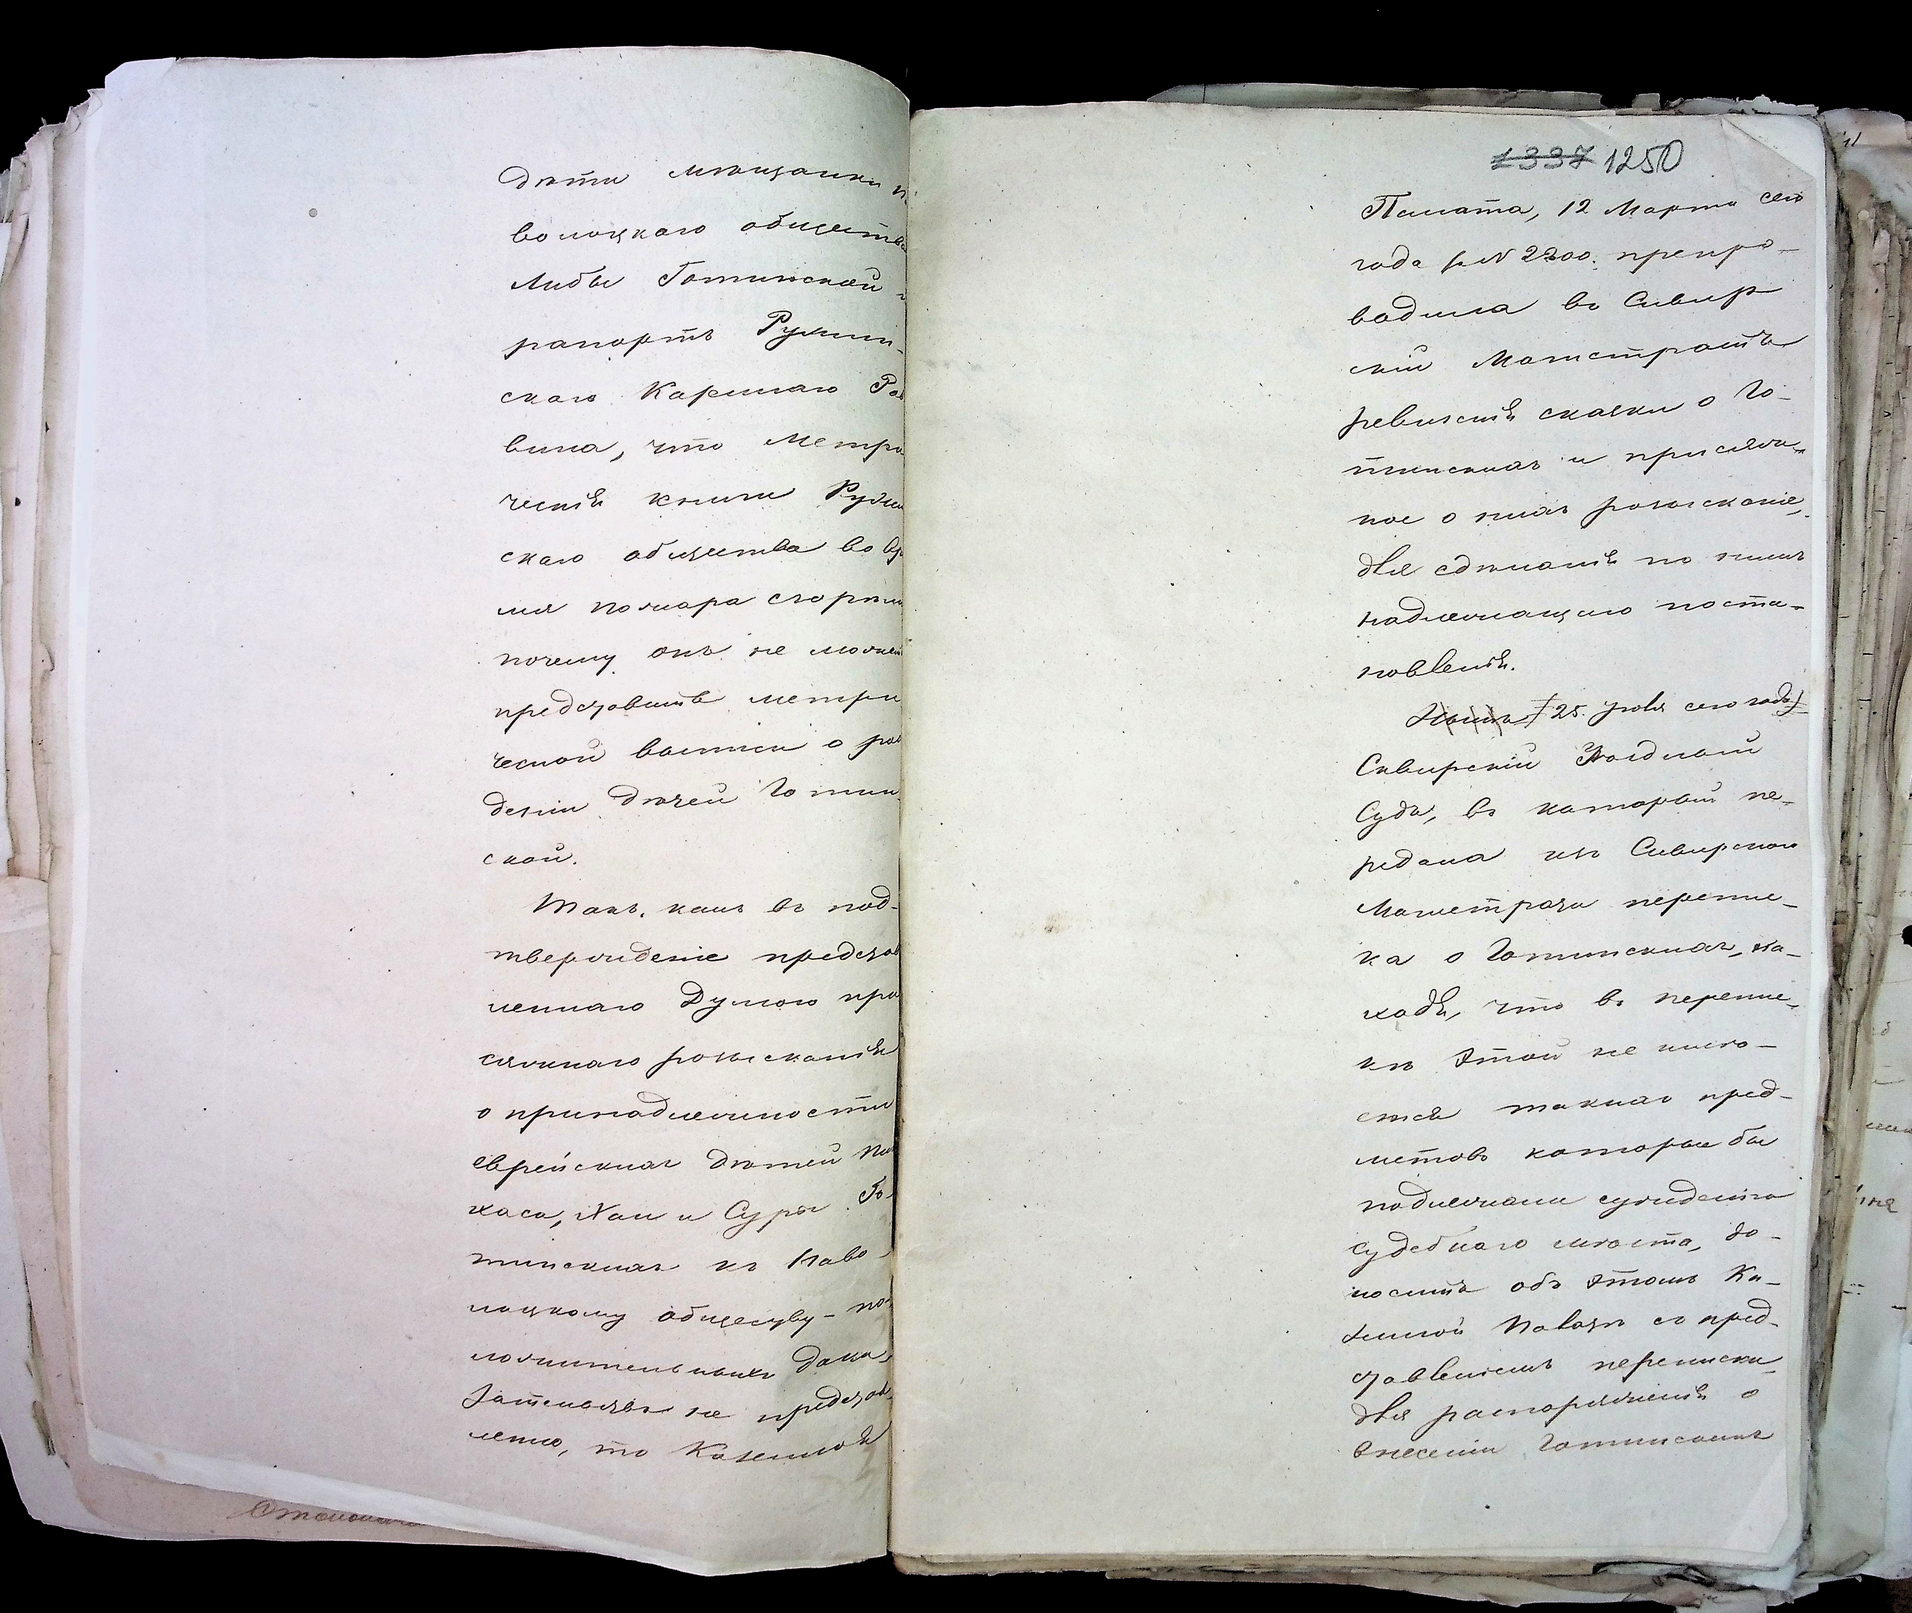 дѣти мѣщанки П
волоцкаго обществ
Либы Готинской и
рапортъ Ружин-
скаго Казеннаго Рав
вина, что метри
ческія книги Ружин
скаго общества во вр
мя пожара сгорѣли
почему онъ не можетъ
представить метри
ческой выписи о рож
деніи дѣтей Готин-
ской.
Такъ какъ въ под-
твержденіе представ
леннаго Думою при
сяжнаго розысканія
о принадлежности
еврейскихъ дѣтей Пи
хаса, Хаи и Суры Го-
тинскихъ къ Паво-
лоцкому обществу – по-
ложительныхъ дока-
зательствъ не представ-
лено, то Казенная
Отношен
1337 1250
Палата, 12 Марта сего
года за N 2200. препро-
водила въ Сквир
скій Магистратъ
ревизскія сказки о Го-
тинскихъ и присяж-
ное о нихъ розысканіе,
для сдѣланія по нимъ
надлежащаго поста-
новленія.
Нынѣ (25. Іюля сего года)
Сквирскій Уѣздный
Судъ, въ который пе-
редана изъ Сквирскаго
Магистрата перепис-
ка о Готинскихъ, на-
ходя, что въ перепис-
кѣ этой не имѣ-
ется такихъ пред-
метовъ которые бы
подлежали сужденію
судебнаго мѣста, до-
носитъ объ этомъ Ка-
зенной Палатѣ съ пред-
ставленіемъ переписки
для распоряженія о
внесеніи Готинскихъ